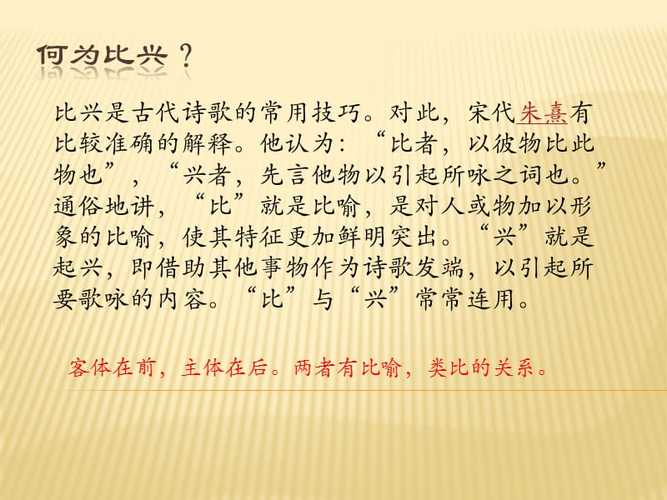 何为比兴？
比兴是古代诗歌的常用技巧。对此，宋代朱熹有
比较准确的解释。他认为：“比者，以彼物比此
物也”，“兴者，先言他物以引起所咏之词也。”
通俗地讲，“比”就是比喻，是对人或物加以形
象的比喻，使其特征更加鲜明突出。“兴”就是
起兴，即借助其他事物作为诗歌发端，以引起所
要歌咏的内容。“比”与“兴”常常连用。
客体在前，主体在后。两者有比喻，类比的关系。